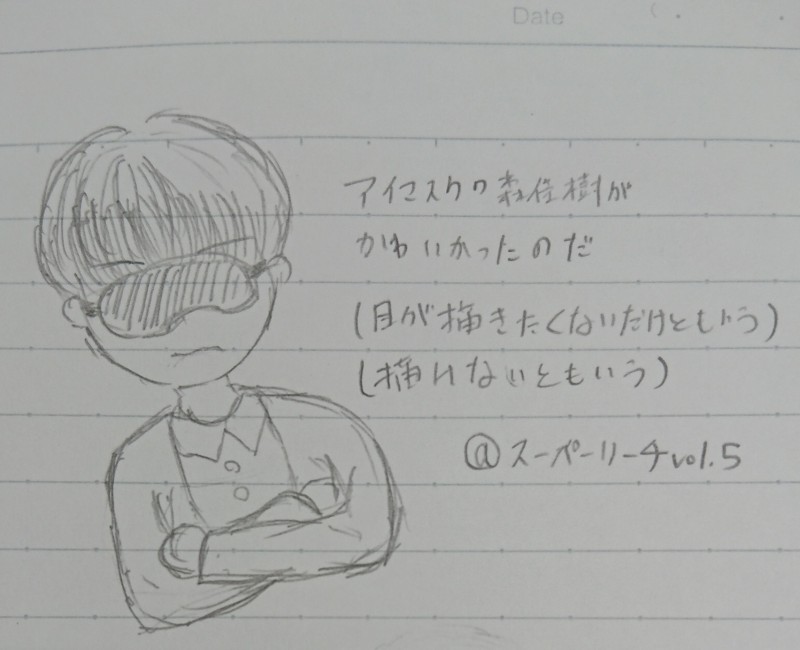 Date
アイマスクの森佳樹が
かわいかったのだ
(目が描きたくないだけともいう)
(描けないともいう)
@スーパーリーチvol.5